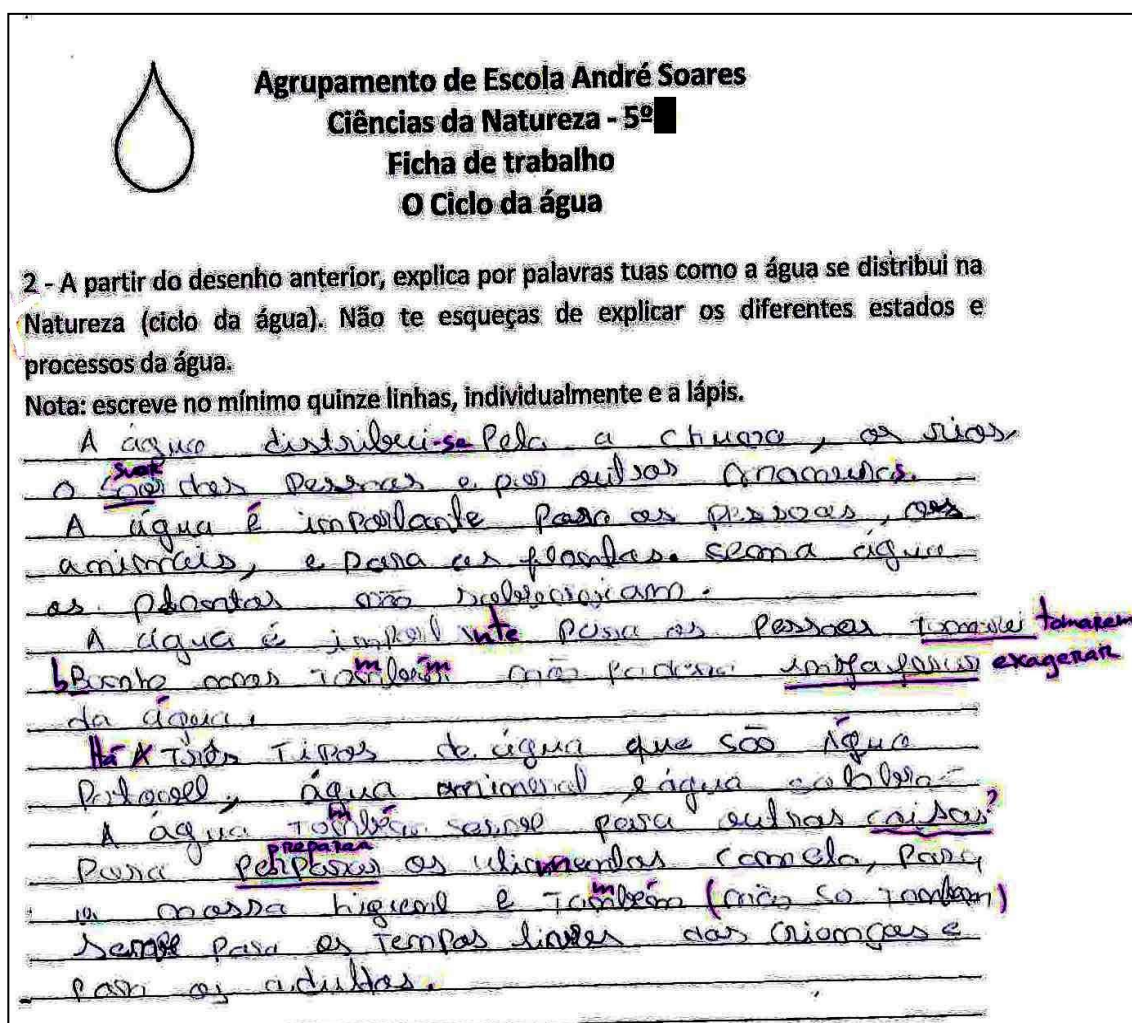 Agrupamento de Escola André Soares
Ciências da Natureza - 5º
Ficha de trabalho
O Ciclo da água
2 - A partir do desenho anterior, explica por palavras tuas como a água se distribui na
Natureza (ciclo da água). Não te esqueças de explicar os diferentes estados e
processos da água.
Nota: escreve no mínimo quinze linhas, individualmente e a lápis.
A água distribui-se Pela a chuva, os rios,
suor
o das Pessoas e por outros
A água é importante para as pessoas, os
animais, e para as plantas. água
as plantas não
A água é importante para as Pessoas tomarem
banho mas também não exagerar
da água.
Há Três Tipos de água que são Água
água e água
A água também serve para outras coisas?
preparar
Para os com ela, Para
a nossa e também (não so Tambem)
serve para os Tempos livres das crianças e
para os adultos.